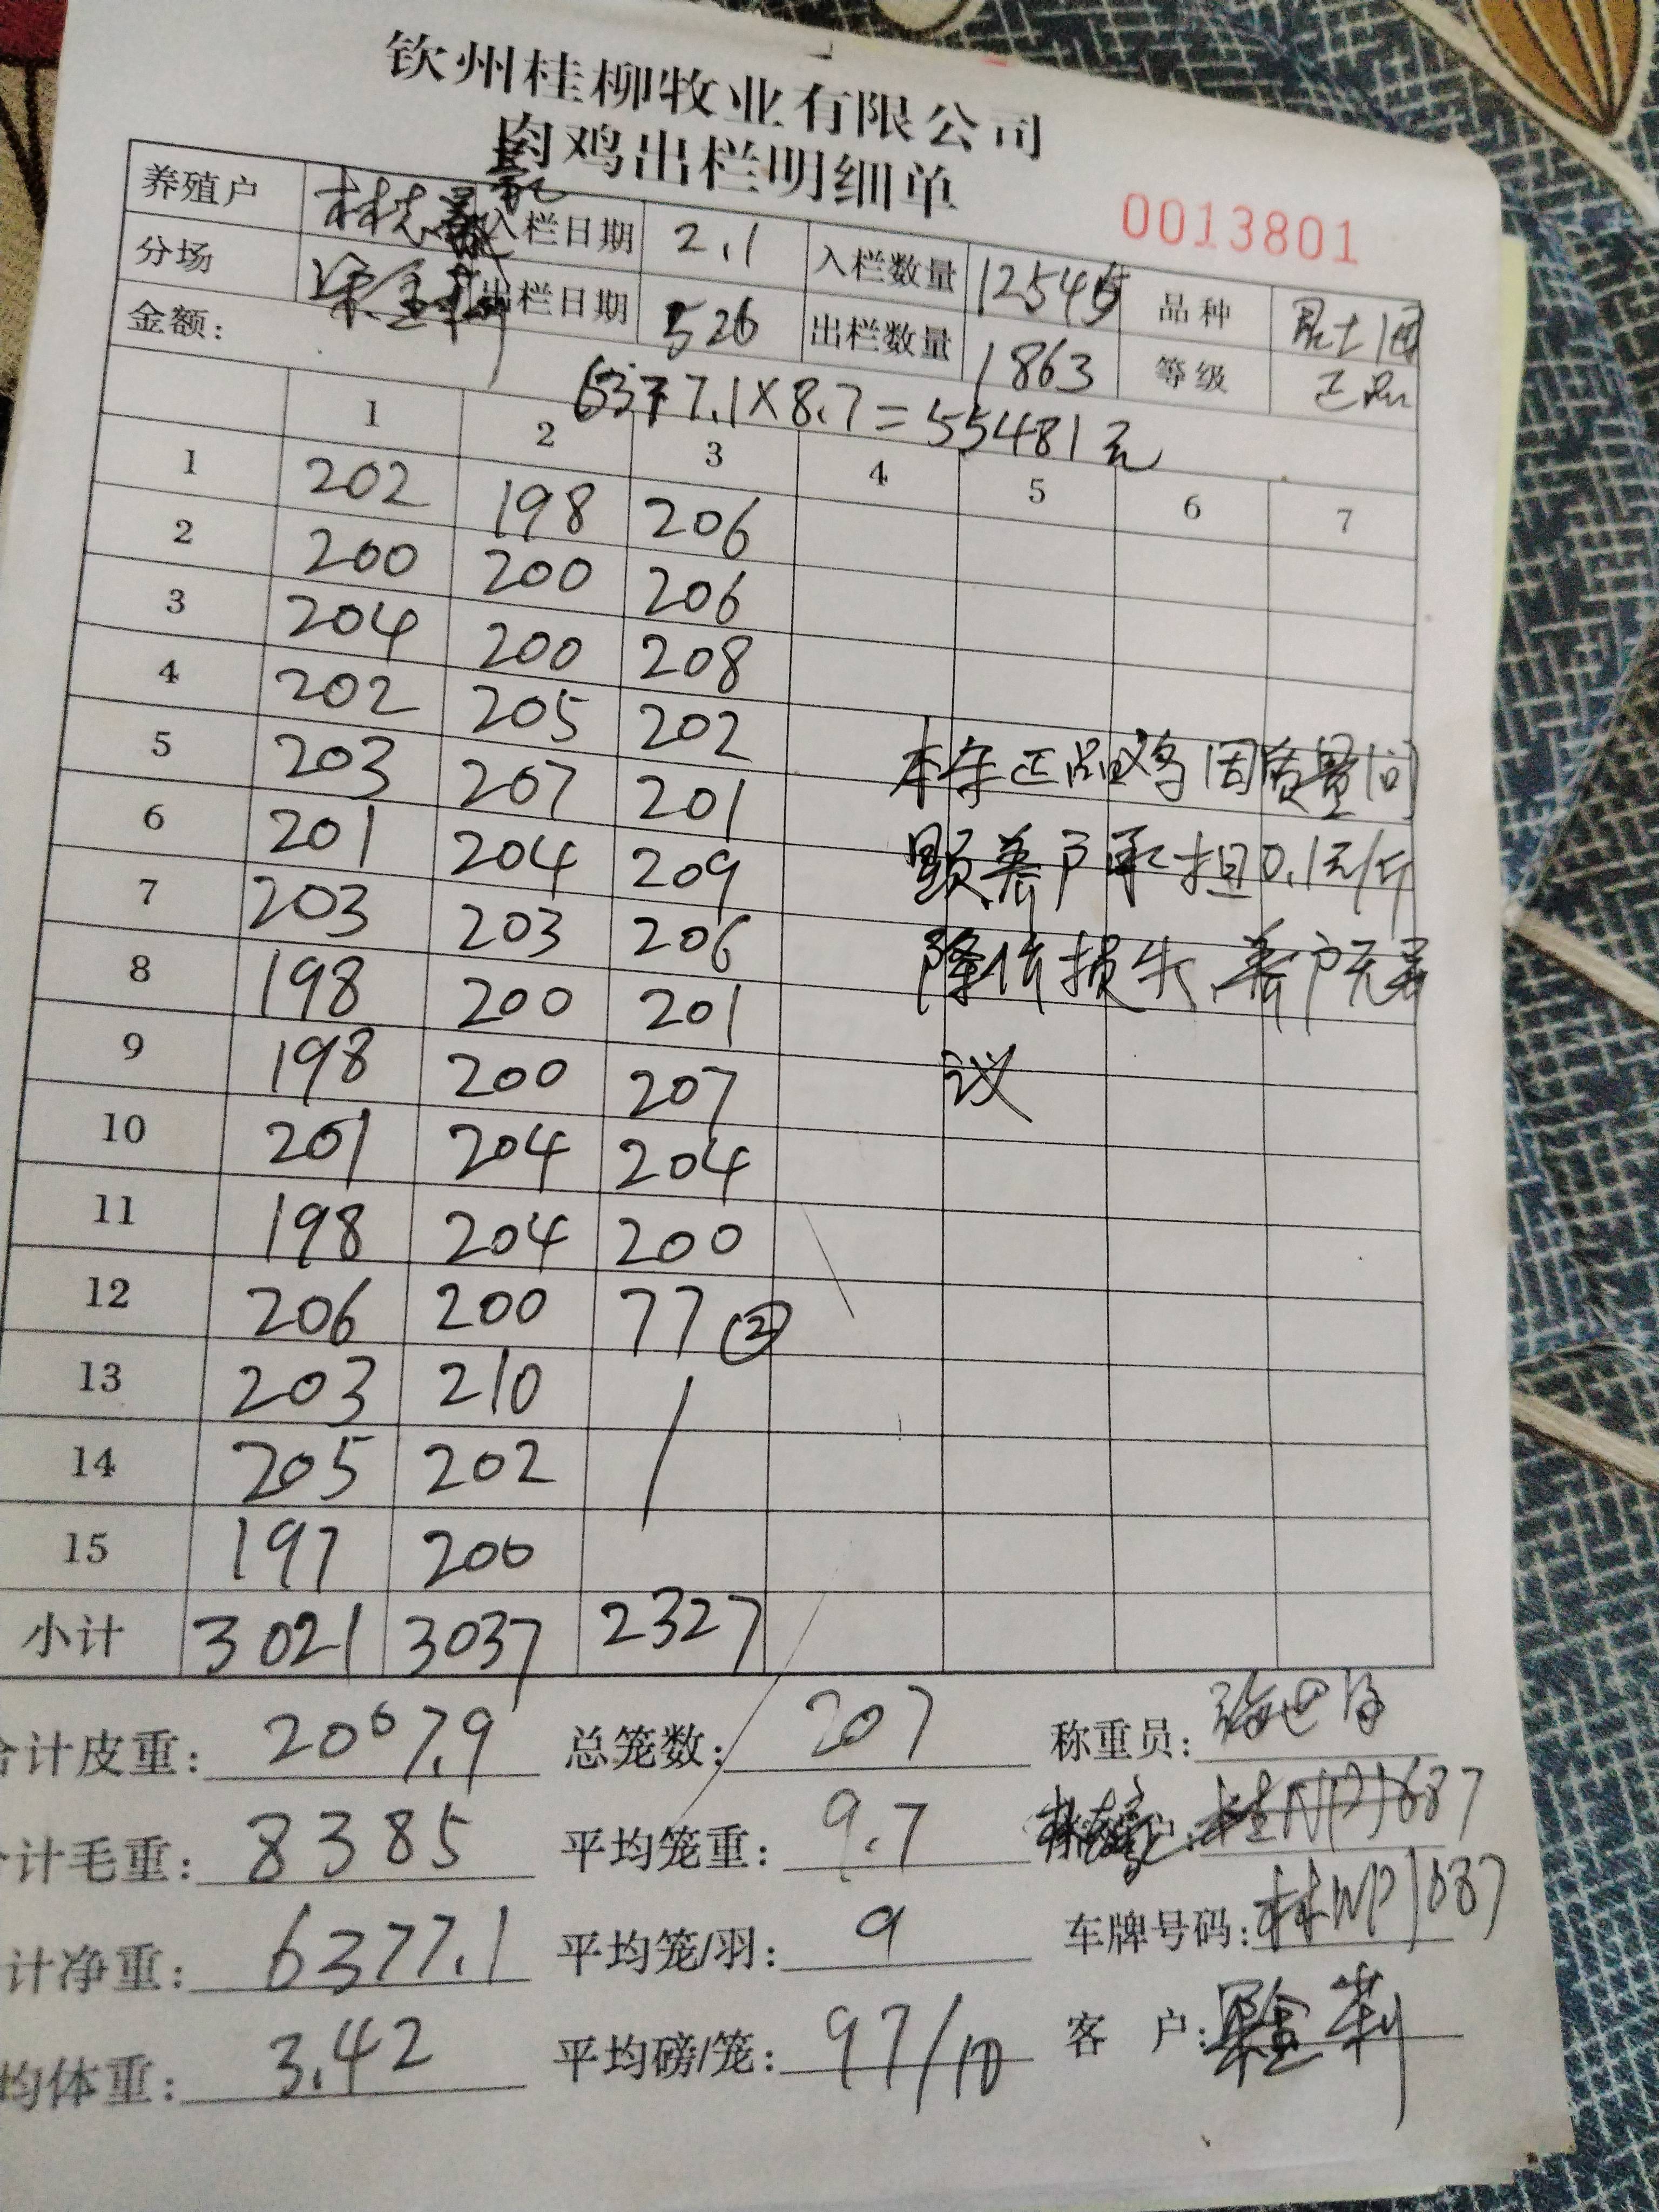 钦州桂柳牧业有限公司
肉鸡出栏明细单
0013801
养殖户 入栏日期 2.1 入栏数量 品种
分场 出栏日期 526 出栏数量 1863 等级 正品
金额: 6377.1×8.7=55481元
1 2 3 4 5 6 7
1 202 198 206
2 200 200 206
3 204 200 208
4 202 205 202
5 203 207 201
6 201 204 209
7 203 203 206
8 198 200 201
9 198 200 207
10 201 204 204
11 198 204 200
12 206 200 77 ②
13 203 210
14 205 202
15 197 200
本车正品鸡因质量问
题养户承担0.1元/斤
降价损失,养户无异
议
小计 3021 3037 2327
合计皮重: 2007.9 总笼数: 207 称重员:
计毛重: 8385 平均笼重: 9.7 户:
计净重: 6377.1 平均笼/羽: 9 车牌号码:
均体重: 3.42 平均磅/笼: 97/10 客 户: